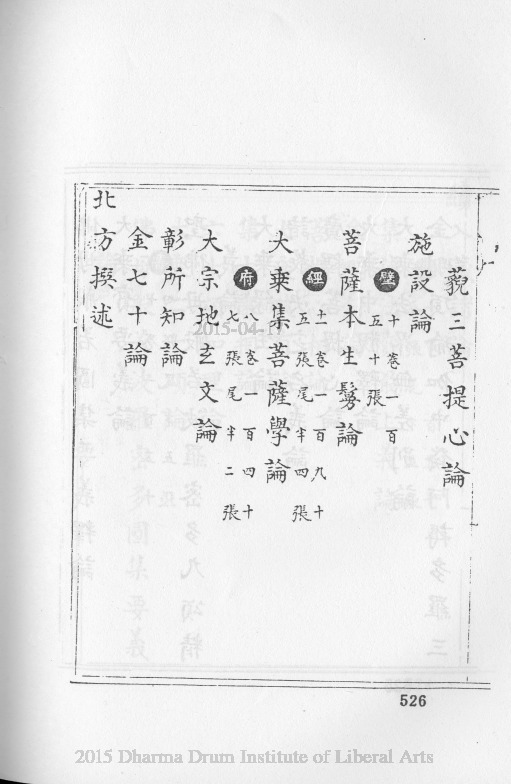 藐三菩提心論
施設論
璧 十卷一百
五十張
菩薩本生鬘論
經 十一卷一百九十
五張尾半四張
大乗集菩薩學論
府 八卷一百四十
七張尾半二張
大宗地玄文論
彰所知論
金七十論
北方撰述
2015-04-17
526
2015 Dharma Drum Institute of Liberal Arts